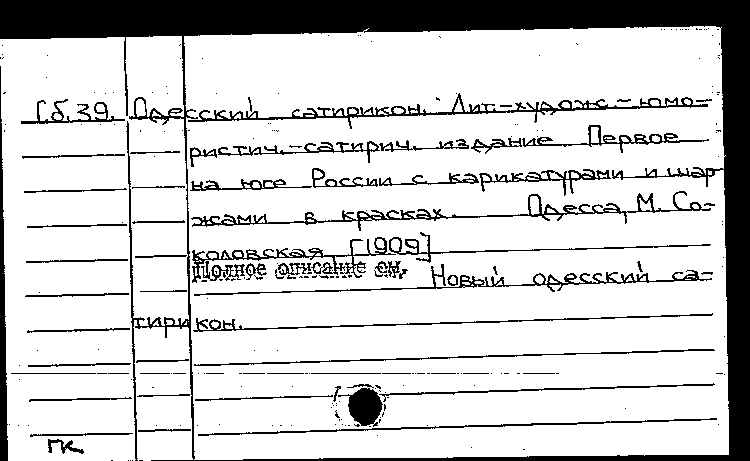 Сб.39. Одесский сатирикон. Лит.-художс-юмо-
ристич.-сатирич. издание Первое
на юге России с карикатурами и шар-
жами в красках. Одесса, М. Со-
коловская, [1909]
Полное описание см. Новый одесский са-
тирикон.
ГК